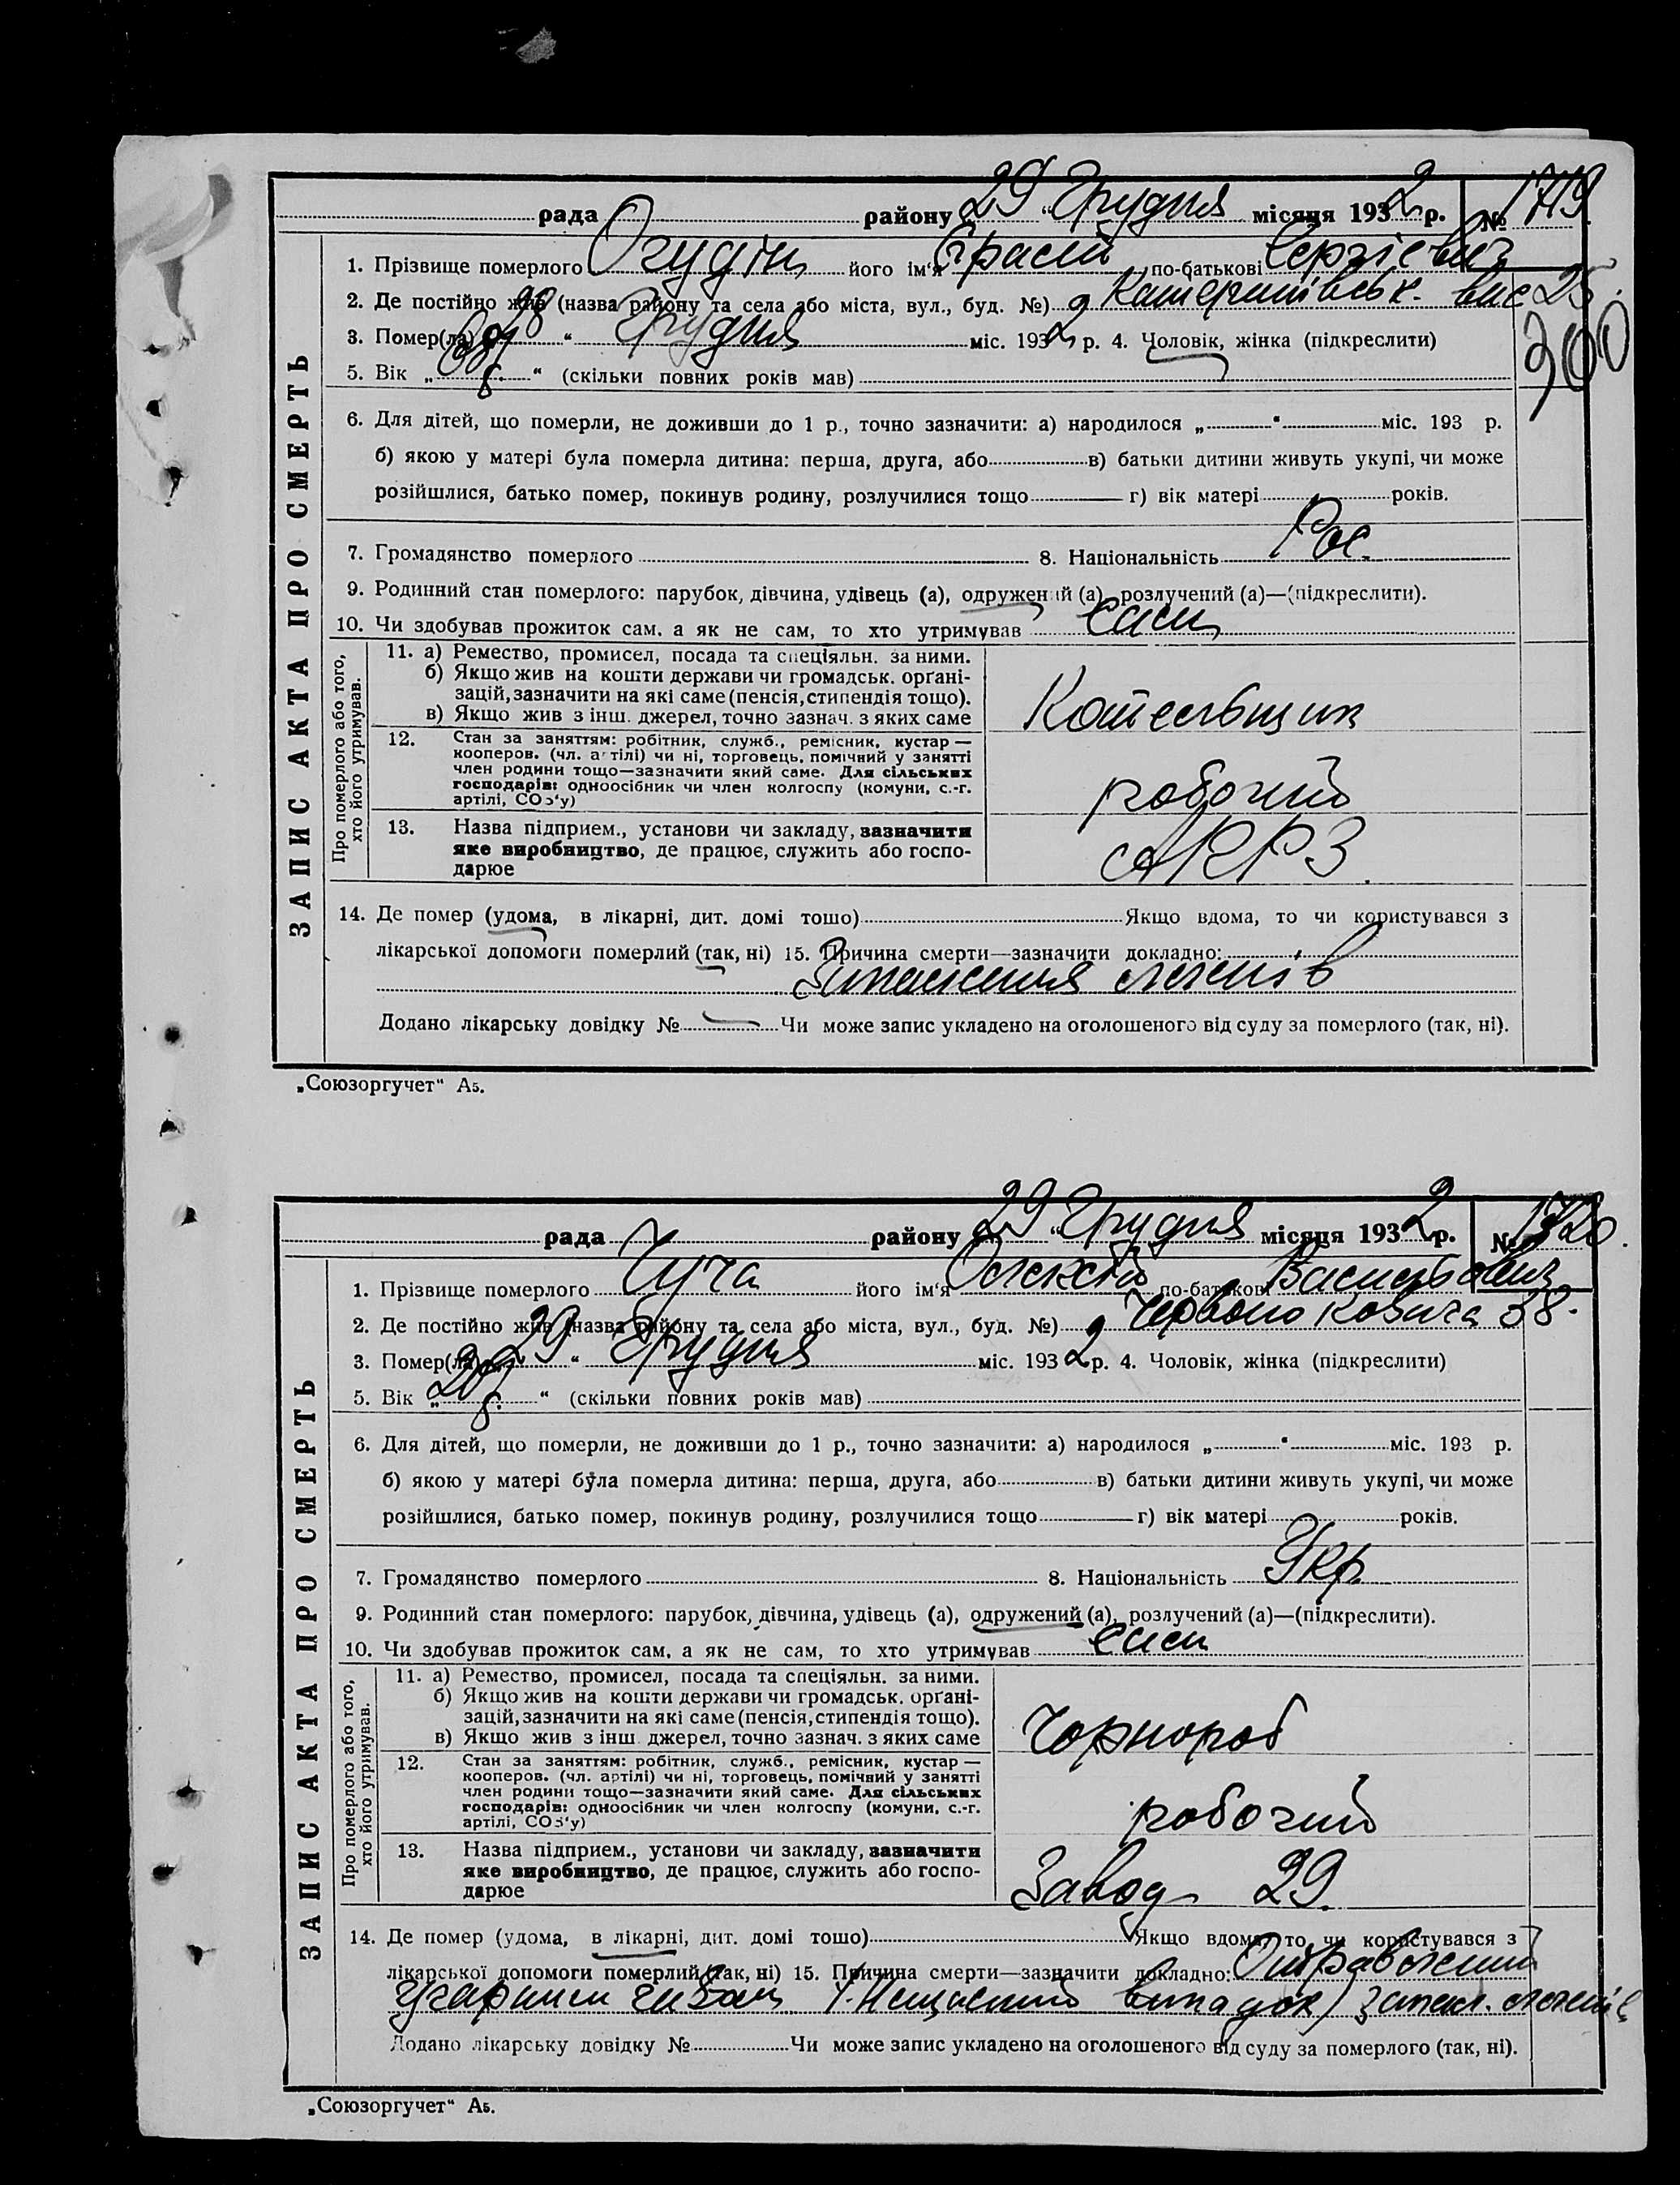 ЗАПИС АКТА ПРО СМЕРТЬ
рада району 29 „Грудня місяця 1932 р. № 1719.
1. Прізвище померлого Огудін його ім'я по-батькові Сергієвич
2. Де постійно жив (назва району та села або міста, вул., буд. №) Катеринівськ. 25.
3. Помер(ла) 28 “ Грудня міс. 1932 р. 4. Чоловік, жінка (підкреслити)
5. Вік „ “ (скільки повних років мав)
300
6. Для дітей, що померли, не доживши до 1 р., точно зазначити: а) народилося „ “ міс. 193 р.
б) якою у матері була померла дитина: перша, друга, або в) батьки дитини живуть укупі, чи може
розійшлися, батько помер, покинув родину, розлучилися тощо г) вік матері років.
7. Громадянство померлого 8. Національність Рос.
9. Родинний стан померлого: парубок, дівчина, удівець (а), одружений (а), розлучений (а)—(підкреслити).
10. Чи здобував прожиток сам, а як не сам, то хто утримував сам
Про померлого або того, хто його утримував.
11. а) Ремество, промисел, посада та спеціяльн. за ними.
б) Якщо жив на кошти держави чи громадськ. орґані-
зацій, зазначити на які саме (пенсія, стипендія тощо).
в) Якщо жив з інш. джерел, точно зазнач. з яких саме
Котельщик
12. Стан за заняттям: робітник, служб., ремісник, кустар —
кооперов. (чл. артілі) чи ні, торговець, помічний у занятті
член родини тощо—зазначити який саме. Для сільських
господарів: одноосібник чи член колгоспу (комуни, с.-г.
артілі, СОЗ'у)
робочий
13. Назва підприєм., установи чи закладу, зазначити
яке виробництво, де працює, служить або госпо-
дарює
АРРЗ.
14. Де помер (удома, в лікарні, дит. домі тошо) Якщо вдома, то чи користувався з
лікарської допомоги померлий (так, ні) 15. Причина смерти—зазначити докладно:
Запалення легенів
Додано лікарську довідку № Чи може запис укладено на оголошеного від суду за померлого (так, ні).
„Союзоргучет“ А5.
ЗАПИС АКТА ПРО СМЕРТЬ
рада району 29 „Грудня місяця 1932 р. № 1720.
1. Прізвище померлого Чуча його ім'я Олексій по-батькові Васильович
2. Де постійно жив (назва району та села або міста, вул., буд. №) Червоно Козача 38.
3. Помер(ла) 29 “ Грудня міс. 1932 р. 4. Чоловік, жінка (підкреслити)
5. Вік „ “ (скільки повних років мав)
6. Для дітей, що померли, не доживши до 1 р., точно зазначити: а) народилося „ “ міс. 193 р.
б) якою у матері була померла дитина: перша, друга, або в) батьки дитини живуть укупі, чи може
розійшлися, батько помер, покинув родину, розлучилися тощо г) вік матері років.
7. Громадянство померлого 8. Національність Укр.
9. Родинний стан померлого: парубок, дівчина, удівець (а), одружений (а), розлучений (а)—(підкреслити).
10. Чи здобував прожиток сам, а як не сам, то хто утримував сам
Про померлого або того, хто його утримував.
11. а) Ремество, промисел, посада та спеціяльн. за ними.
б) Якщо жив на кошти держави чи громадськ. орґані-
зацій, зазначити на які саме (пенсія, стипендія тощо).
в) Якщо жив з інш. джерел, точно зазнач. з яких саме
Чорнороб
12. Стан за заняттям: робітник, служб., ремісник, кустар —
кооперов. (чл. артілі) чи ні, торговець, помічний у занятті
член родини тощо—зазначити який саме. Для сільських
господарів: одноосібник чи член колгоспу (комуни, с.-г.
артілі, СОЗ'у)
робочий
13. Назва підприєм., установи чи закладу, зазначити
яке виробництво, де працює, служить або госпо-
дарює
Завод 29.
14. Де помер (удома, в лікарні, дит. домі тошо) Якщо вдома, то чи користувався з
лікарської допомоги померлий (так, ні) 15. Причина смерти—зазначити докладно:
угарним (Нещасний випадок) запал. легенів
Додано лікарську довідку № Чи може запис укладено на оголошеного від суду за померлого (так, ні).
„Союзоргучет“ А5.